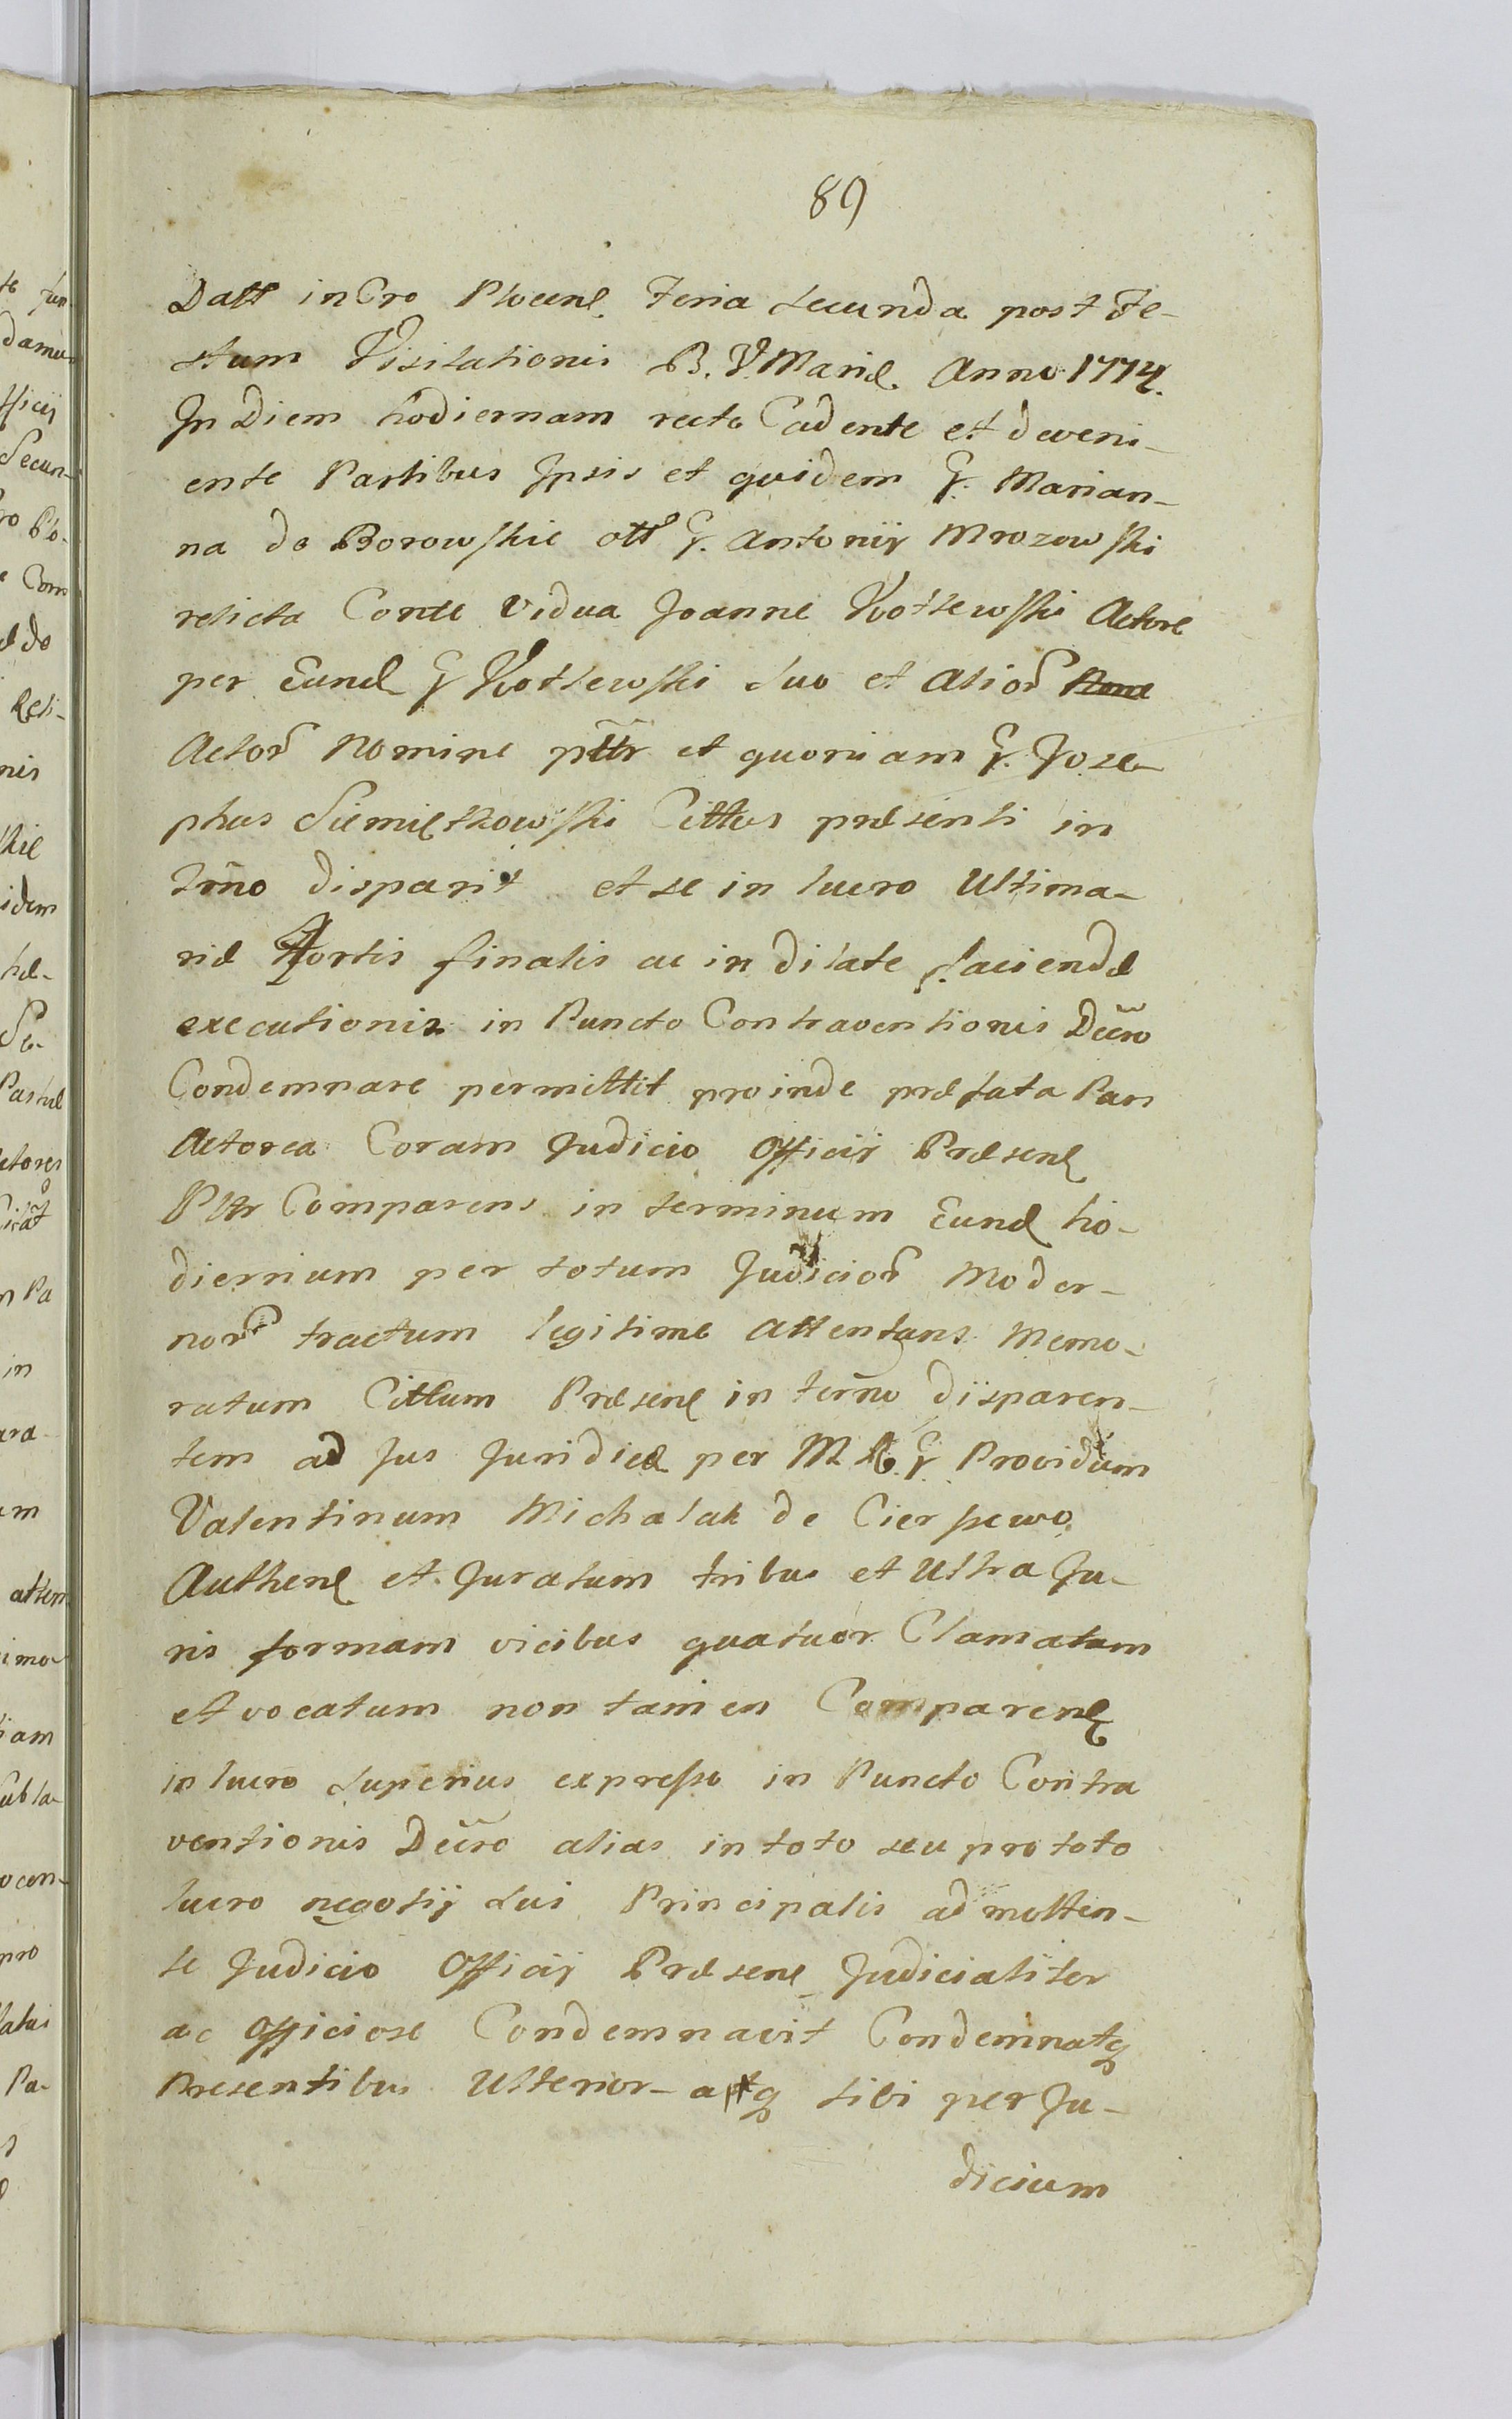 89
Datt in Cro Plocenę. Feria Secunda post Fe-
stum Visitationis B. V. Mariæ. Anno 1774.
In Diem hodiernam recte Cadente et deveni-
ente Partibus Ipsis et quidem G. Marian-
na de Borowskie ott G. Antonij Mrozowski
relicta Conte Vidua Joanne Kotlewski Actore
per Eund G Kotlewski Suo et alior
Actor Nomine pttr et quoniam G. Jose-
phus Siemiętkowski Cittus præsenti in
Trno disparit et se in lucro Ultima-
riæ Sortis finalis ac in dilate faciendæ
executionis in Puncto Contraventionis Dcro
Condemnare permittit proinde præfata Pars
Actorea Coram Judicio Officij Præsenę
Pttr Comparens in terminum Eund ho-
diernum per totum Judicior Moder-
nor tractum legitime attentans Memo-
ratum Cittum Præsenę in termo disparen-
tem ad Jus Juridice per M G Providum
Valentinum Michalak de Cierszewo
Authenę et Juratum tribus et Ultra Ju-
ris formam vicibus quatuor Clamatum
et vocatum non tamen Comparenę
in lucro Superius expresso in Puncto Contra
ventionis Dcro alias in toto seu pro toto
lucro negotij Sui Principalis admitten-
te Judicio Officij Præsenę Judicialiter
ac officiose Condemnavit Condemnatq
Presentibus Ulterior- atq Sibi per Ju-
dicium